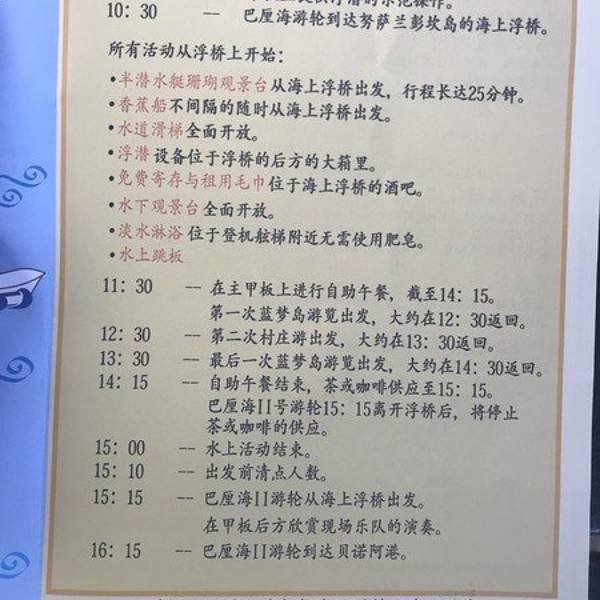 10：30 -- 巴厘海游轮到达努萨兰彭坎岛的海上浮桥。
所有活动从浮桥上开始：
•半潜水艇珊瑚观景台从海上浮桥出发，行程长达25分钟。
•香蕉船不间隔的随时从海上浮桥出发。
•水道滑梯全面开放。
•浮潜设备位于浮桥的后方的大箱里。
•免费寄存与租用毛巾位于海上浮桥的酒吧。
•水下观景台全面开放。
•淡水淋浴位于登机舷梯附近无需使用肥皂。
•水上跳板
11：30 -- 在主甲板上进行自助午餐，截至14：15。
第一次蓝梦岛游览出发，大约在12：30返回。
12：30 -- 第二次村庄游出发，大约在13：30返回。
13：30 -- 最后一次蓝梦岛游览出发，大约在14：30返回。
14：15 -- 自助午餐结束，茶或咖啡供应至15：15。
巴厘海II号游轮15：15离开浮桥后，将停止
茶或咖啡的供应。
15：00 -- 水上活动结束。
15：10 -- 出发前清点人数。
15：15 -- 巴厘海II游轮从海上浮桥出发。
在甲板后方欣赏现场乐队的演奏。
16：15 -- 巴厘海II游轮到达贝诺阿港。